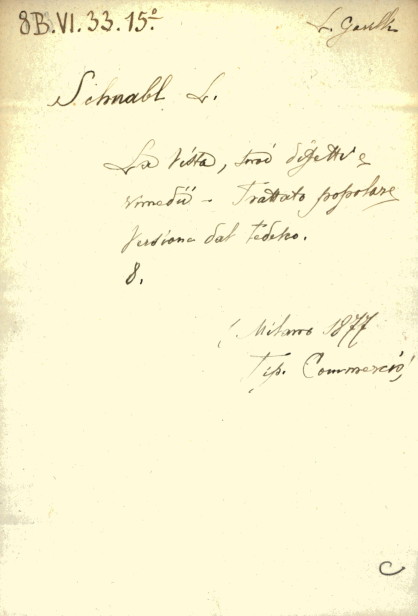 8B.VI.33.15.º
Schnabl L.
La Vista, suoi difetti e
rimedii - Trattato popolare
Versione dal tedesco.
8.
( Milano 1877
Tip. Commercio)
C